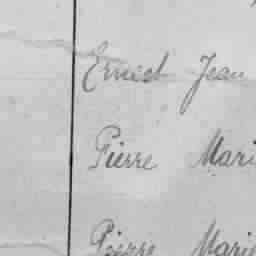 Ernest Jean
Pierre Mari
Pierre Marie